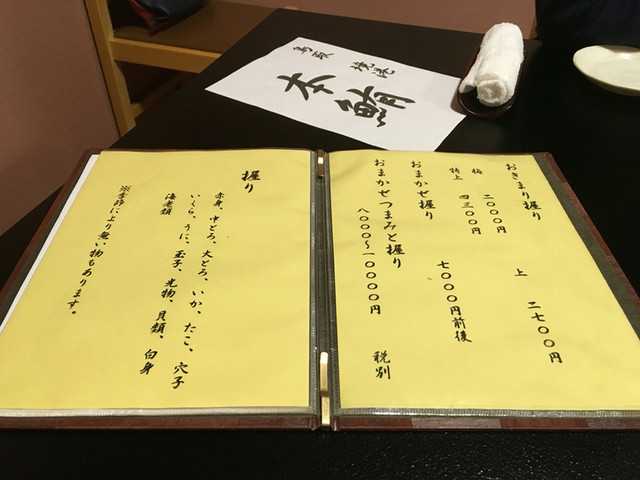 鳥取 境港
本鮪
おきまり握り
梅 二〇〇〇円 上 二七〇〇円
特上 四三〇〇円
おまかせ握り
七〇〇〇円前後
おまかせつまみと握り
八〇〇〇〜一〇〇〇〇円 税別
握り
赤身、中とろ、大とろ、いか、たこ、穴子
いくら、うに、玉子、光物、貝類、白身
海老類
※季節により無い物もあります。